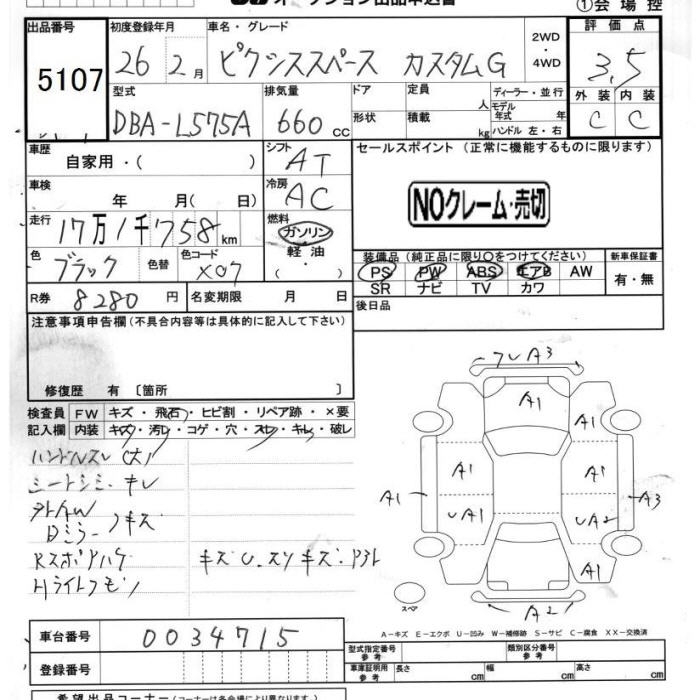 オークション出品申込書
①会場控
出品番号
5107
初度登録年月
26 2月
車名・グレード
ピクシススペース カスタムG
2WD
・
4WD
評価点
3.5
外装 内装
C C
型式
DBA-L575A
排気量
660 cc
ドア
形状
定員
人
積載
kg
ディーラー・並行
モデル年式 年
ハンドル 左・右
車歴
自家用・( )
シフト
AT
セールスポイント (正常に機能するものに限ります)
車検
年 月( 日)
冷房
AC
NOクレーム・売切
走行
17万1千758km
燃料
ガソリン
軽油
・( )
色
ブラック
色替
色コード
X07
装備品 (純正品に限り○をつけてください)
PS PW ABS エアB AW
SR ナビ TV カワ
新車保証書
有・無
R券
8280 円
名変期限 月 日
後日品
注意事項申告欄(不具合内容等は具体的に記入して下さい)
修復歴 有 〔箇所 〕
検査員
記入欄
FW キズ・飛石・ヒビ割・リペア跡・×要
内装 キズ・汚レ・コゲ・穴・スレ・キレ・破レ
ハンドルスレ(大)
シートシミ・キレ
キズ
RスポアハゲキズU.スリキズ.
Hライト
A3
A1
A1
A1
A1
A1
A1
UA1
UA2
A3
A1
A2
スペア
A-キズ E-エクボ U-凹み W-補修跡 S-サビ C-腐食 XX-交換済
車台番号
0034715
登録番号
型式指定番号
参考
類別区分番号
参考
車庫証明用
参考
長さ cm
幅 cm
高さ cm
希望出品コーナー(コーナー名は各会場により異なります。)